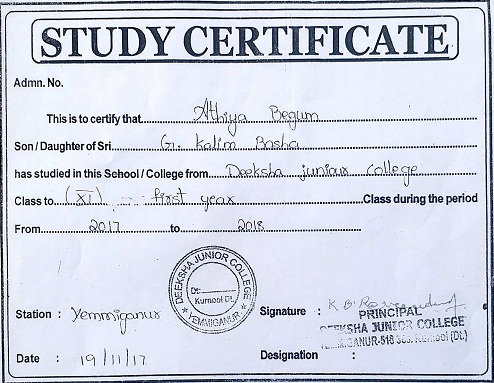 STUDY CERTIFICATE
Admn. No.
This is to certify that Athiya Begum
Son / Daughter of Sri G. Kalim Basha
has studied in this School / College from Deeksha juniour college
Class to (XI) first year Class during the period
From 2017 to 2018
DEEKSHA JUNIOR COLLEGE
Dt:
Kurnool Dt.
* YEMMIGANUR *
Station : Yemmiganur
Signature :
PRINCIPAL
DEEKSHA JUNIOR COLLEGE
YEMMIGANUR-518 Kurnool (Dt.)
Date : 19/11/17
Designation :